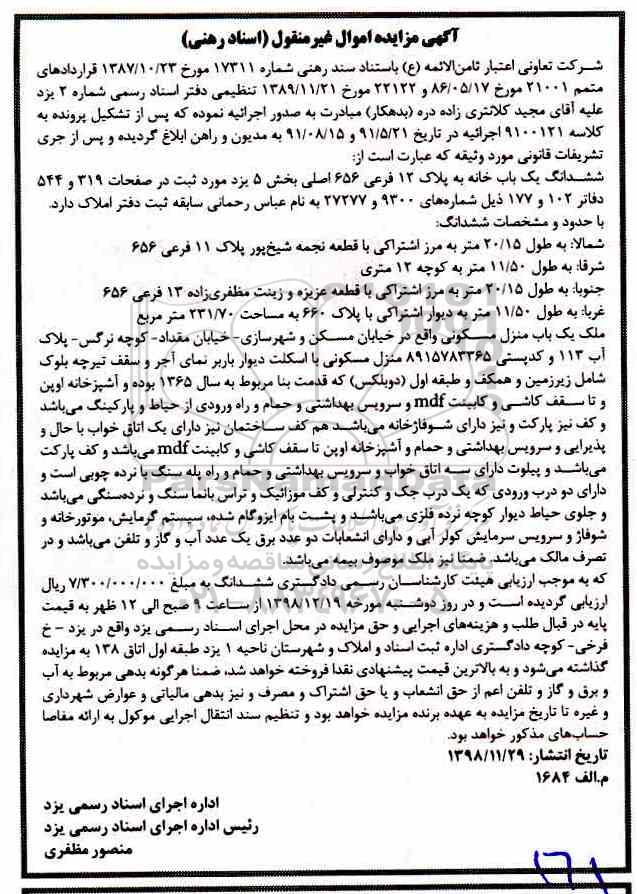 آگهی مزایده اموال غیرمنقول (اسناد رهنی)
شرکت تعاونی اعتبار ثامن‌الائمه (ع) باستناد سند رهنی شماره ۱۷۳۱۱ مورخ ۱۳۸۷/۱۰/۲۳ قراردادهای
متمم ۲۱۰۰۱ مورخ ۸۶/۰۵/۱۷ و ۲۲۱۲۲ مورخ ۱۳۸۹/۱۱/۲۱ تنظیمی دفتر اسناد رسمی شماره ۲ یزد
علیه آقای مجید کلانتری زاده دره (بدهکار) مبادرت به صدور اجرائیه نموده که پس از تشکیل پرونده به
کلاسه ۹۱۰۰۱۲۱ اجرائیه در تاریخ ۹۱/۵/۲۱ و ۹۱/۰۸/۱۵ به مدیون و راهن ابلاغ گردیده و پس از جری
تشریفات قانونی مورد وثیقه که عبارت است از:
ششدانگ یک باب خانه به پلاک ۱۲ فرعی ۶۵۶ اصلی بخش ۵ یزد مورد ثبت در صفحات ۳۱۹ و ۵۴۴
دفاتر ۱۰۲ و ۱۷۷ ذیل شماره‌های ۹۳۰۰ و ۲۷۲۷۷ به نام عباس رحمانی سابقه ثبت دفتر املاک دارد.
با حدود و مشخصات ششدانگ:
شمالا: به طول ۲۰/۱۵ متر به مرز اشتراکی با قطعه نجمه شیخ‌پور پلاک ۱۱ فرعی ۶۵۶
شرقا: به طول ۱۱/۵۰ متر به کوچه ۱۲ متری
جنوبا: به طول ۲۰/۱۵ متر به مرز اشتراکی با قطعه عزیزه و زینت مظفری‌زاده ۱۳ فرعی ۶۵۶
غربا: به طول ۱۱/۵۰ متر به دیوار اشتراکی با پلاک ۶۶۰ به مساحت ۲۳۱/۷۰ متر مربع
ملک یک باب منزل مسکونی واقع در خیابان مسکن و شهرسازی- خیابان مقداد- کوچه نرگس- پلاک
آب ۱۱۳ و کدپستی ۸۹۱۵۷۸۳۳۶۵ منزل مسکونی با اسکلت دیوار باربر نمای آجر و سقف تیرچه بلوک
شامل زیرزمین و همکف و طبقه اول (دوبلکس) که قدمت بنا مربوط به سال ۱۳۶۵ بوده و آشپزخانه اوپن
و تا سقف کاشی و کابینت mdf و سرویس بهداشتی و حمام و راه ورودی از حیاط و پارکینگ می‌باشد
و کف نیز پارکت و نیز دارای شوفاژخانه می‌باشد هم کف ساختمان نیز دارای یک اتاق خواب با حال و
پذیرایی و سرویس بهداشتی و حمام و آشپزخانه اوپن تا سقف کاشی و کابینت mdf می‌باشد و کف پارکت
می‌باشد و پیلوت دارای سه اتاق خواب و سرویس بهداشتی و حمام و راه پله سنگ با نرده چوبی است و
دارای دو درب ورودی که یک درب جک و کنترلی و کف موزائیک و تراس بانما سنگ و نرده‌سنگی می‌باشد
و جلوی حیاط دیوار کوچه نرده فلزی می‌باشد و پشت بام ایزوگام شده، سیستم گرمایش، موتورخانه و
شوفاژ و سرویس سرمایش کولر آبی و دارای انشعابات دو عدد برق یک عدد آب و گاز و تلفن می‌باشد و در
تصرف مالک می‌باشد. ضمنا نیز ملک موصوف بیمه می‌باشد.
که به موجب ارزیابی هیئت کارشناسان رسمی دادگستری ششدانگ به مبلغ ۷/۳۰۰/۰۰۰/۰۰۰ ریال
ارزیابی گردیده است و در روز دوشنبه مورخه ۱۳۹۸/۱۲/۱۹ از ساعت ۹ صبح الی ۱۲ ظهر به قیمت
پایه در قبال طلب و هزینه‌های اجرایی و حق مزایده در محل اجرای اسناد رسمی یزد واقع در یزد – خ
فرخی- کوچه دادگستری اداره ثبت اسناد و املاک و شهرستان ناحیه ۱ یزد طبقه اول اتاق ۱۳۸ به مزایده
گذاشته می‌شود و به بالاترین قیمت پیشنهادی نقدا فروخته خواهد شد، ضمنا هرگونه بدهی مربوط به آب
و برق و گاز و تلفن اعم از حق انشعاب و یا حق اشتراک و مصرف و نیز بدهی مالیاتی و عوارض شهرداری
و غیره تا تاریخ مزایده به عهده برنده مزایده خواهد بود و تنظیم سند انتقال اجرایی موکول به ارائه مفاصا
حساب‌های مذکور خواهد بود.
تاریخ انتشار: ۱۳۹۸/۱۱/۲۹
م.الف ۱۶۸۴
اداره اجرای اسناد رسمی یزد
رئیس اداره اجرای اسناد رسمی یزد
منصور مظفری